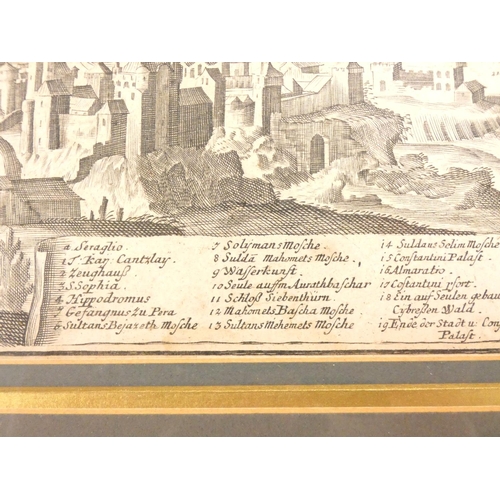 a Seraglio.
1 T. Kay. Cantzlay.
2 Zeughauß.
3 S. Sophia.
4 Hippodromus
5 Gefangnus zu Pera
6 Sultans Bejazeth Moſche
7 Solÿmans Moſche.
8 Suldā Mahomets Moſche.
9 Waſſerkunſt.
10 Seule auffm Aurathbaſchar
11 Schloß Siebenthurn.
12 Mahomets Baſcha Moſche.
13 Sultans Mehemets Moſche
14 Suldans Selim Moſche
15 Conſtantini Palaſt.
16 Almaratro.
17 Coſtantini pfort.
18 Ein auf Seulen geba
Cÿbreßen Wald.
19 Ende der Stadt u: Con
Palaſt.